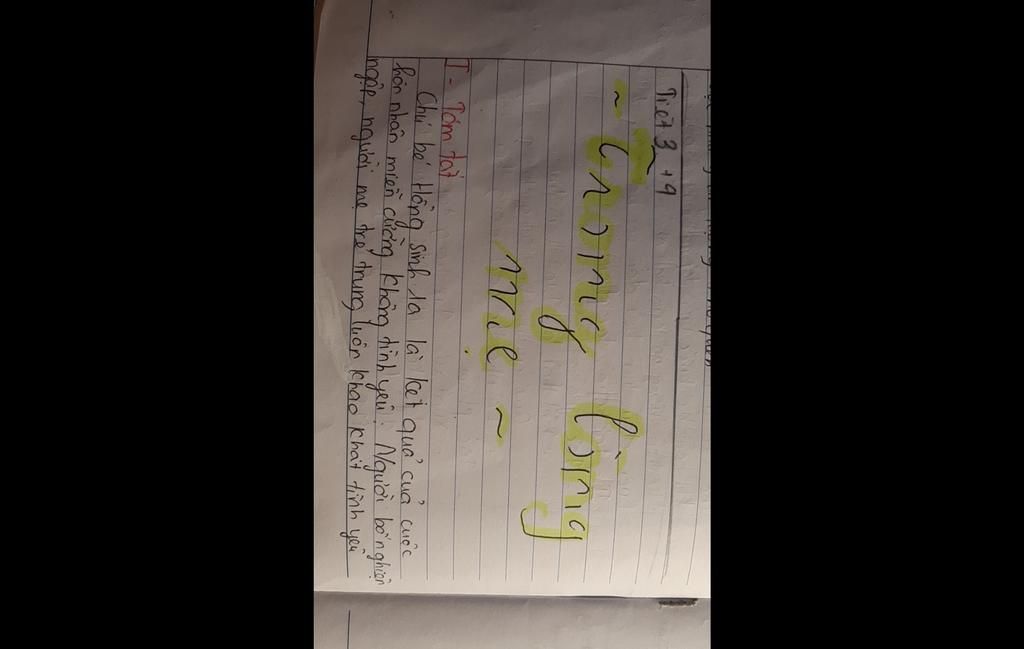 Tiết 3 + 4
~ Trong lòng
mẹ ~
I - Tóm tắt
Chú bé Hồng sinh ra là kết quả của cuộc
hôn nhân miễn cưỡng không tình yêu. Người bố nghiện
ngập, người mẹ trẻ trung luôn khao khát tình yêu